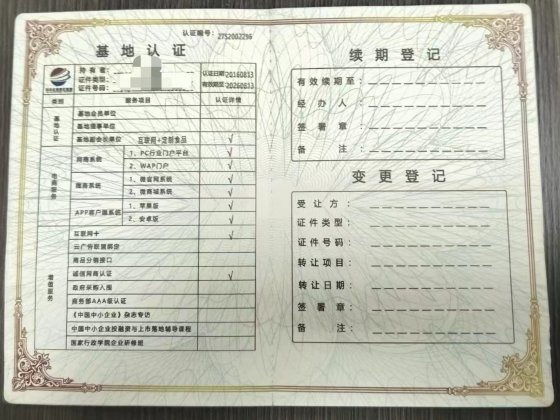 认证编号：27S2002296
基地认证
持有者：
证件类型：
证件号码：
认证日期 20160813
有效期至 20260813
类别 服务项目 认证详情
基地认证
基地会员单位
基地理事单位
基地副会长单位 互联网+定制食品 √
电商服务
网商系统 1、PC行业门户平台 √
2、WAP门户 √
微商系统 1、微官网系统 √
2、微商城系统 √
APP客户端系统 1、苹果版 √
2、安卓版 √
增值服务
互联网+ √
云广告联盟绑定
商品分销接口
诚信网商认证 √
政府采购入围
商务部AAA级认证
《中国中小企业》杂志专访
中国中小企业投融资与上市落地辅导课程
国家行政学院企业研修班
续期登记
有效续期至：
经办人：
签署章：
备注：
变更登记
受让方：
证件类型：
证件号码：
转让项目：
转让日期：
签署章：
备注：